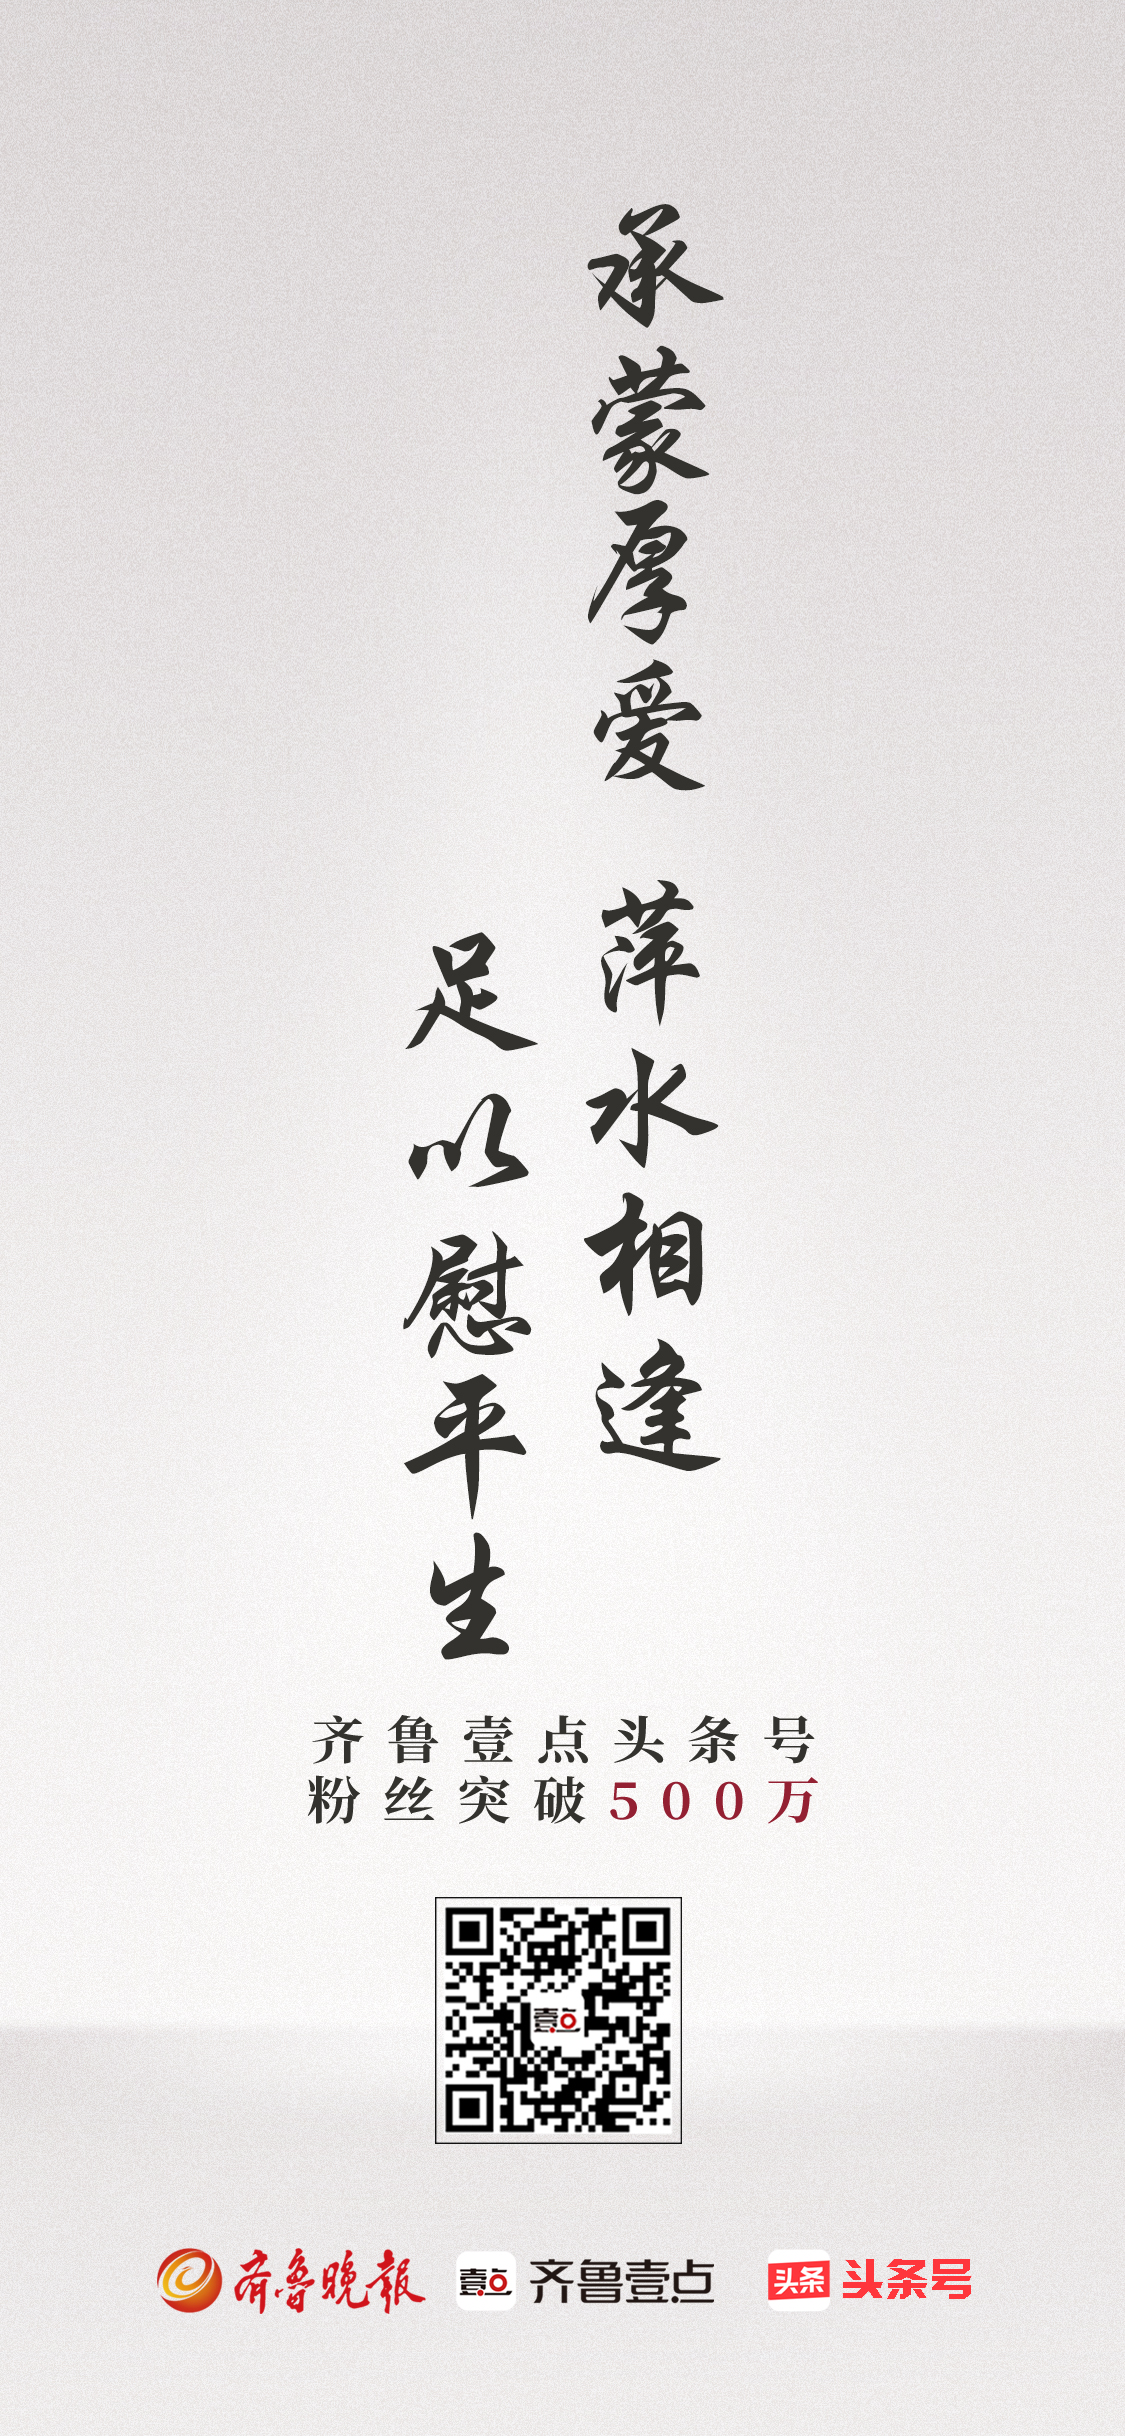 承蒙厚爱 萍水相逢
足以慰平生
齐鲁壹点头条号
粉丝突破500万
壹点
齐鲁晚报
壹点 齐鲁壹点
头条 头条号